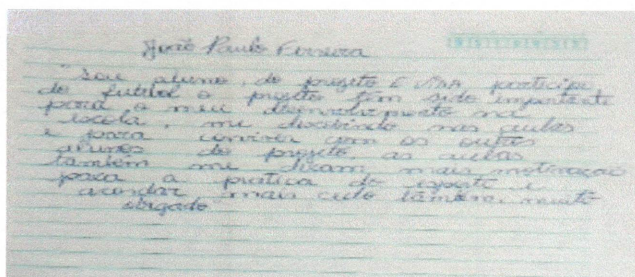 João Paulo Ferreira
"Sou aluno, do projeto E VIDA participo
do futebol o projeto tem sido importante
para o meu desenvolvimento na
escola, me nas aulas
e para conviver com os outros
alunos do projeto, as aulas
também me mais motivação
para a pratica do esporte e
acordar mais cedo também, muito
obrigado